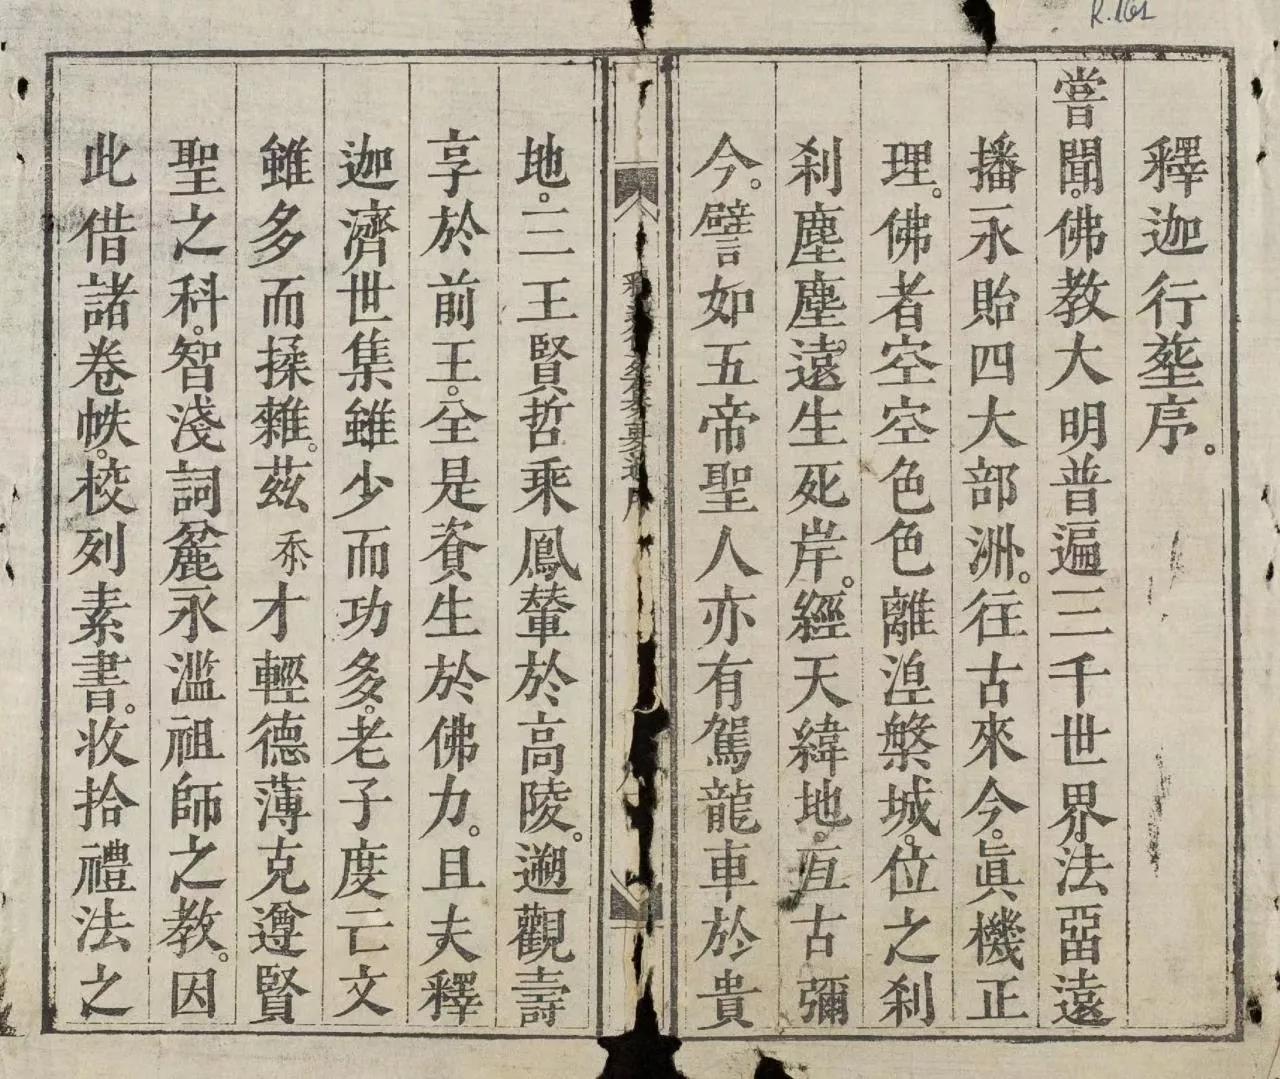 R.161
釋迦行塟序。
嘗聞。佛教大明普遍三千世界。法噐遠
播永貽四大部洲。往古來今。眞機正
理。佛者空空色色離湼槃城。位之刹
刹塵塵。遠生死岸。經天緯地。亙古彌
今。譬如五帝聖人亦有駕龍車於貴
地。三王賢哲乘鳳輦於高陵。遡觀壽
享於前王。全是資生於佛力。且夫釋
迦濟世集雖少而功多。老子度亡文
雖多而揉雜。茲忝才輕德薄克遵賢
聖之科。智淺詞麄永滥祖師之教。因
此借諸卷帙。校列素書。收拾禮法之